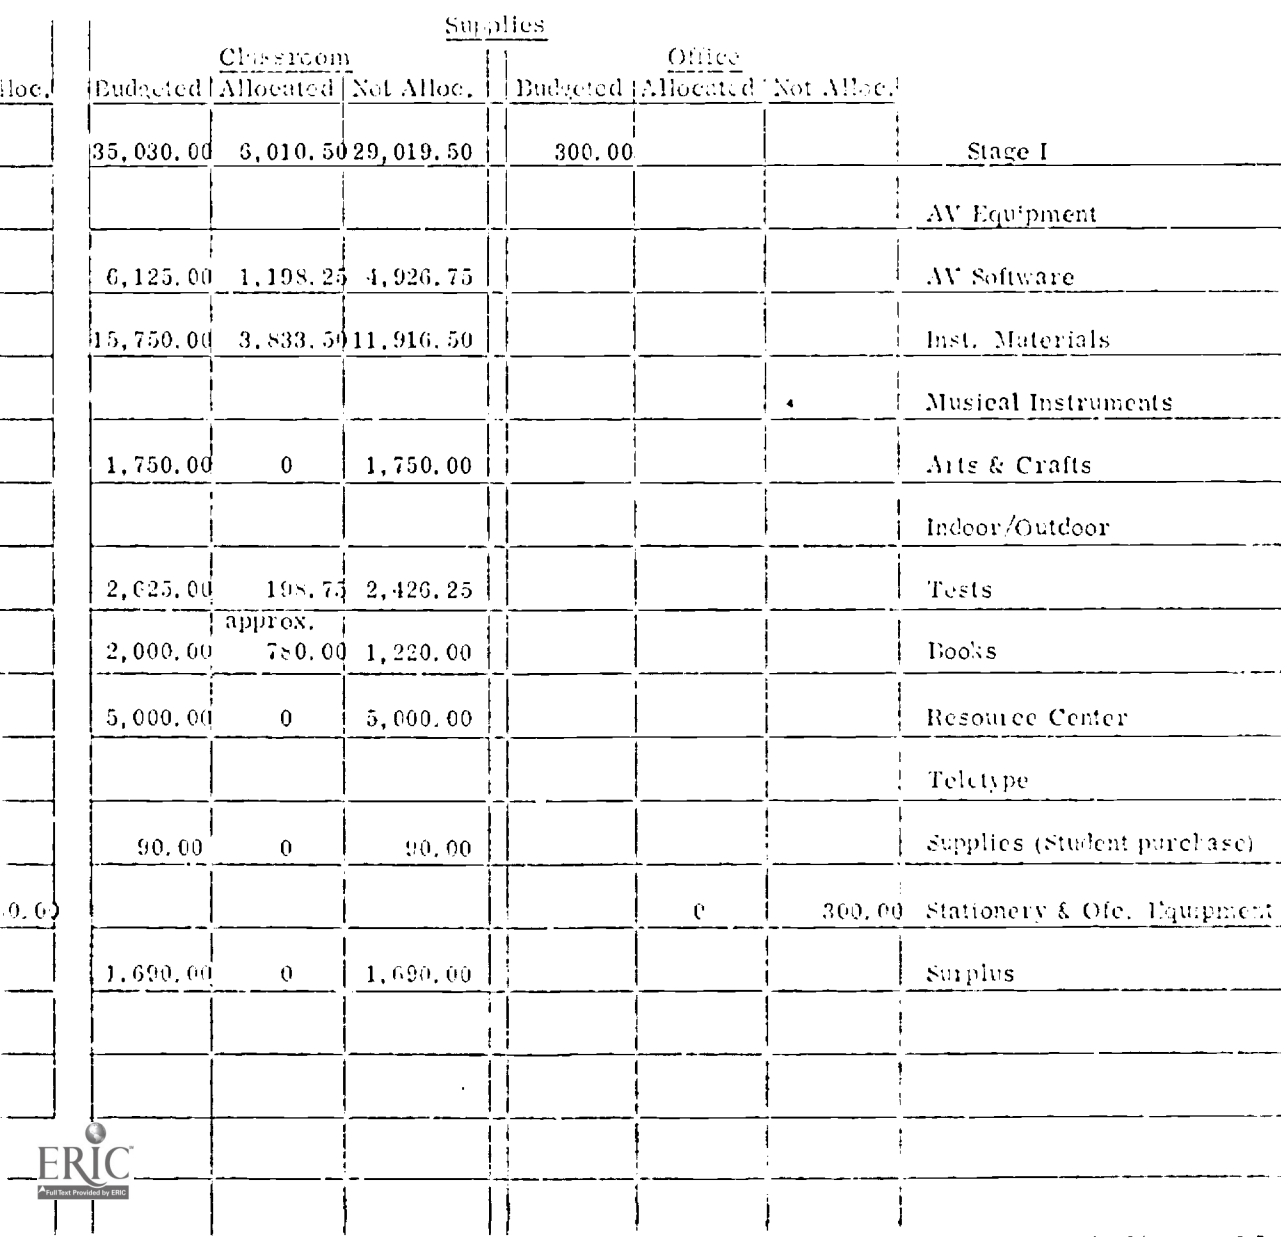 Supplies
Classroom Office
lloc. Budgeted Allocated Not Alloc. Budgeted Allocated Not Alloc.
35,030.00 6,010.50 29,019.50 300.00 Stage I
AV Equipment
6,125.00 1,198.25 4,926.75 AV Software
15,750.00 3,833.50 11,916.50 Inst. Materials
Musical Instruments
1,750.00 0 1,750.00 Arts & Crafts
Indoor/Outdoor
2,625.00 198.75 2,426.25 Tests
approx.
2,000.00 780.00 1,220.00 Books
5,000.00 0 5,000.00 Resource Center
Teletype
90.00 0 90.00 Supplies (Student purchase)
0.00 0 300.00 Stationery & Ofc. Equipment
1,690.00 0 1,690.00 Surplus
ERIC
Full Text Provided by ERIC